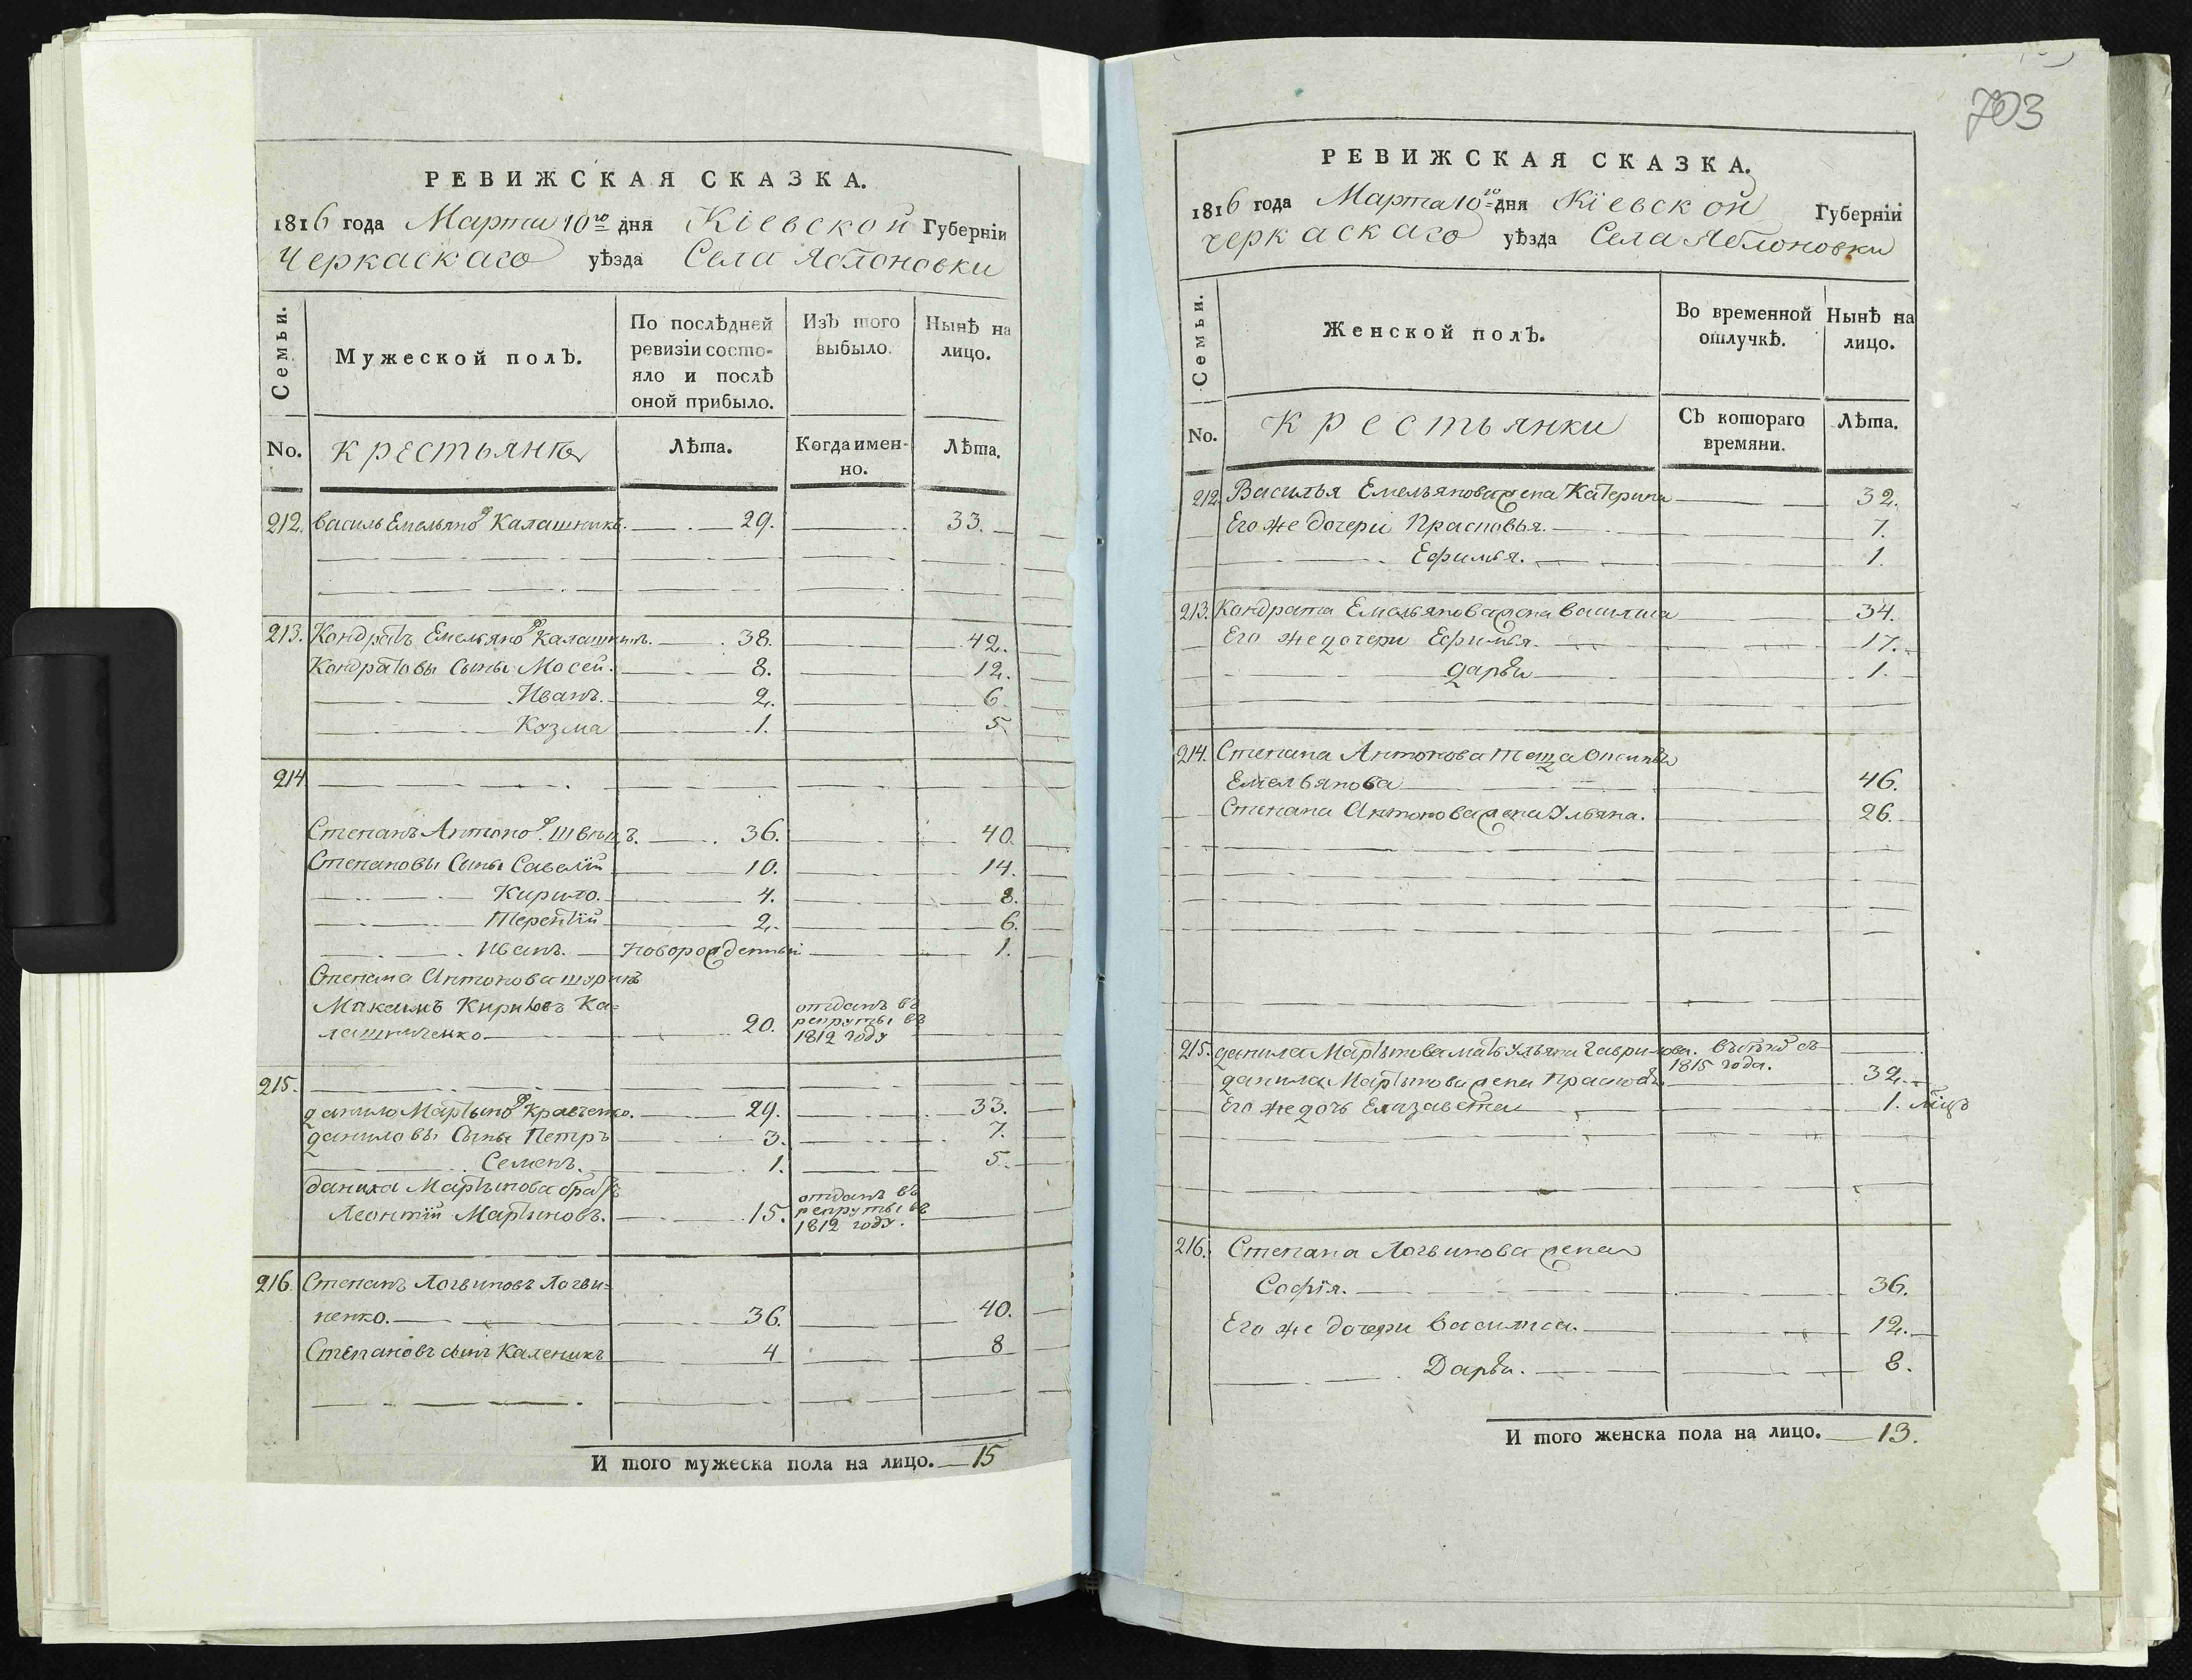 РЕВИЖСКАЯ СКАЗКА.
1816 года Марта 10го дня Кіевской Губерніи
Черкаскаго уѣзда Села Яблоновки
Семьи.
Мужеской полъ.
По послѣдней
ревизіи состо-
яло и послѣ
оной прибыло.
Изъ того
выбыло.
Нынѣ на
лицо.
No. Крестьяне Лѣта. Когда имен-
но. Лѣта.
212. Василь Емельянов Калашникъ. 29. 33.
213. Кондратъ Емельянов Калашникъ. 38. 42.
Кондратовы Сыны Мосей. 8. 12.
Иванъ. 2. 6.
Козма 1. 5.
214
Степанъ Антонов Швецъ. 36. 40.
Степановы Сыны Савелій 10. 14.
Кирило. 4. 8.
Терентій 2. 6.
Иванъ. Новорожденный 1.
Степана Антонова шуринъ
Максимъ Кириловъ Ка=
лашниченко 20. отданъ въ
рекруты въ
1812 году
215.
Данило Мартынов Кравченко. 29. 33.
Даниловы Сыны Петръ 3. 7.
Семенъ. 1. 5.
Данила Мартынова братъ
Леонтій Мартыновъ. 15. отданъ въ
рекруты въ
1812 году.
216. Степанъ Логвиновъ Логви=
ненко. 36. 40.
Степановъ сынъ Каленикъ 4 8
И того мужеска пола на лицо. 15
703
РЕВИЖСКАЯ СКАЗКА.
1816 года Марта 10го дня Кіевской Губерніи
Черкаскаго уѣзда Села Яблоновки
Семьи.
Женской полъ.
Во временной
отлучкѣ.
Нынѣ на
лицо.
No. Крестьянки Съ котораго
времяни. Лѣта.
212. Василья Емельянова жена Катерина 32.
Его же дочери Прасковья. 7.
Ефимья. 1.
213. Кондрата Емельянова жена Василиса 34.
Его же дочери Ефимья. 17.
Дарья 1.
214. Степана Антонова теща
Емельянова 46.
Степана Антонова жена Ульяна. 26.
215. Данила Мартынова мать Ульяна Гаврилова. съ
1815 года.
Данила Мартынова жена Прасковья 32.
Его же дочь Елизавета 1.
216. Степана Логвинова жена
Софія. 36.
Его же дочери Василиса. 12.
Дарья. 8.
И того женска пола на лицо. 13.